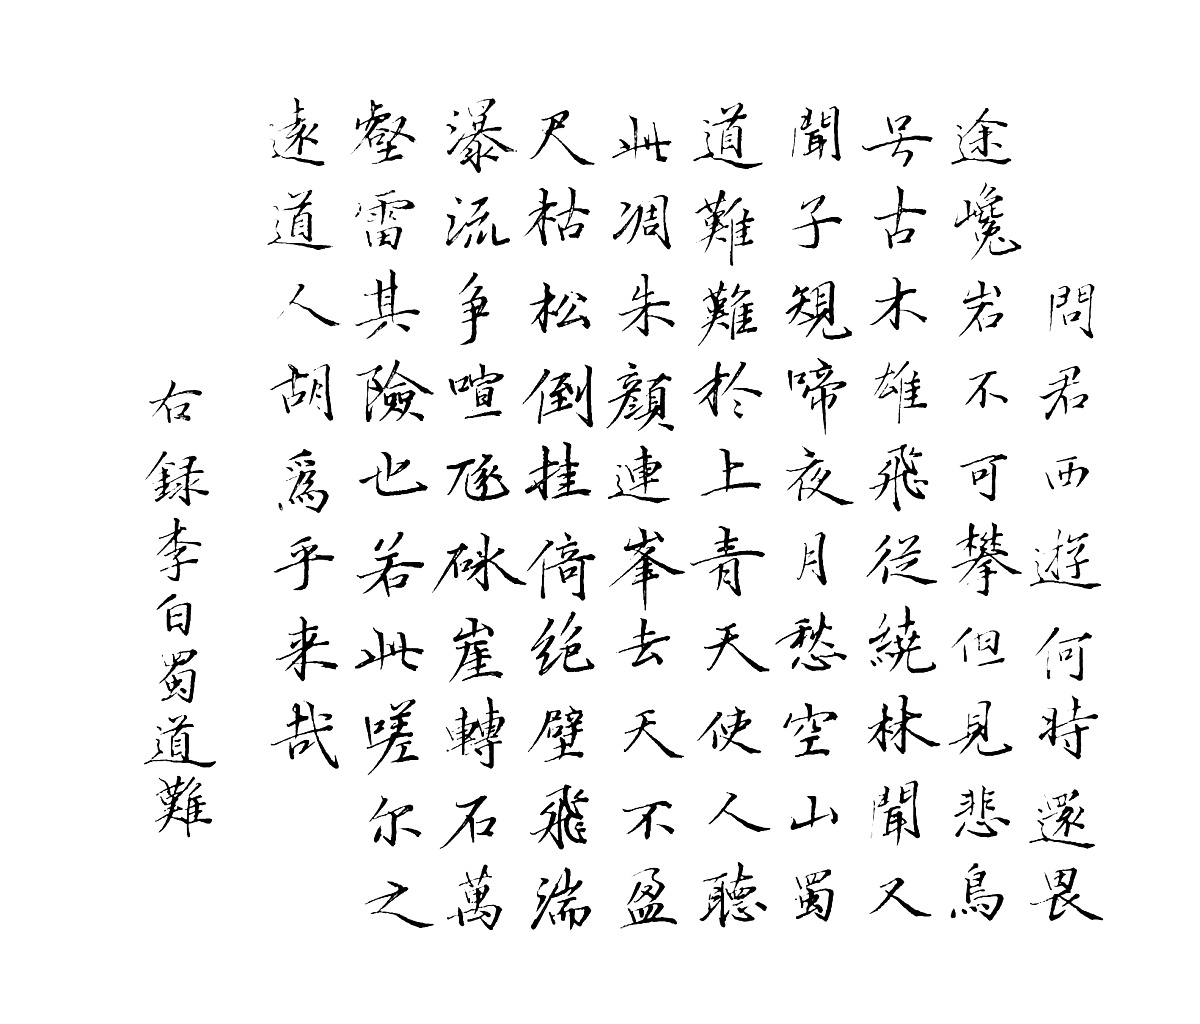 問君西遊何時還畏
途巉岩不可攀但見悲鳥
号古木雄飛從繞林聞又
聞子規啼夜月愁空山蜀
道難難於上青天使人聽
此凋朱顏連峯去天不盈
尺枯松倒挂倚絶壁飛湍
瀑流争喧豗砯崖轉石萬
壑雷其險也若此嗟尔之
遠道人胡爲乎来哉
右録李白蜀道難